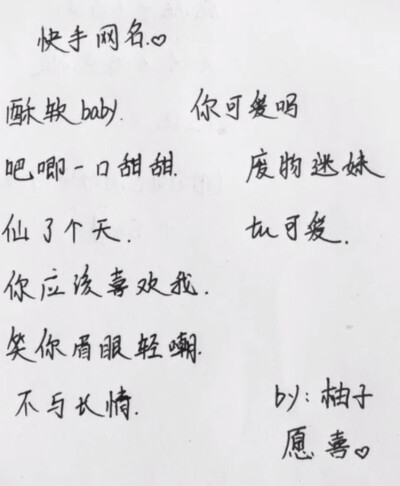 快手网名♡
酥软baby. 你可爱吗
吧唧一口甜甜. 废物迷妹
仙了个天. tu可爱.
你应该喜欢我.
笑你眉眼轻嘲.
不与长情.
by:柚子
愿喜♡